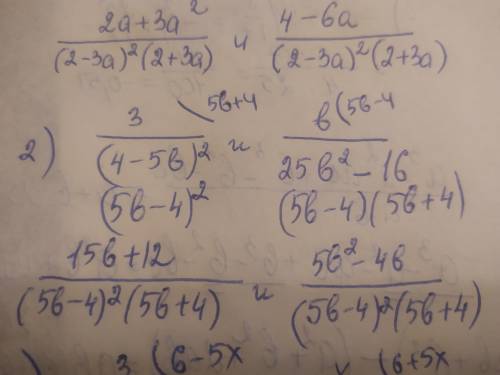 2a+3a² / (2-3a)²(2+3a) и 4-6a / (2-3a)²(2+3a)
2) 3 \5b+4 / (4-5b)² и b(5b-4 / 25b²-16
(5b-4)² (5b-4)(5b+4)
15b+12 / (5b-4)²(5b+4) и 5b²-4b / (5b-4)²(5b+4)
) 3 (6-5x x (6+5x